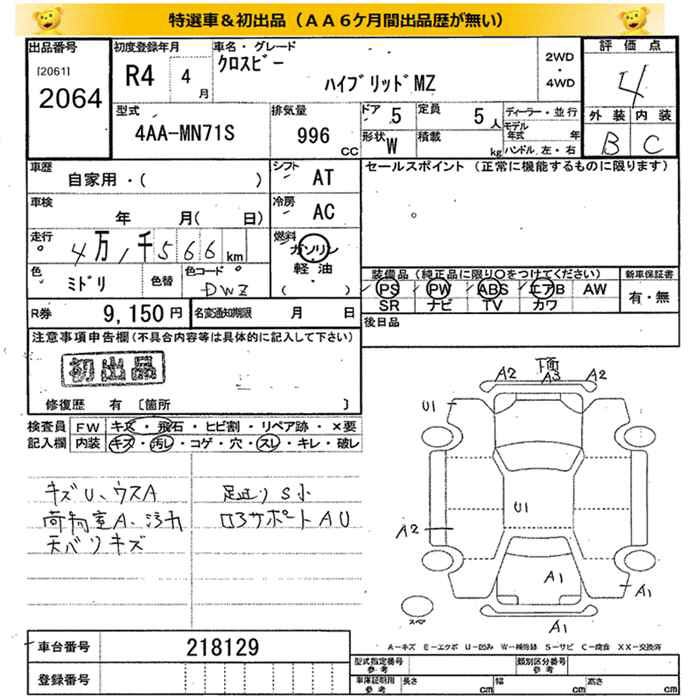 特選車&初出品(AA6ケ月間出品歴が無い)
出品番号
[2061]
2064
初度登録年月
R4 4 月
車名・グレード
クロスビー
ハイブリッドMZ
2WD
・
4WD
評価点
4
外装 内装
B C
型式
4AA-MN71S
排気量
996 CC
ドア 5
定員 5 人
形状 W
積載 kg
ディーラー・並行
モデル年式 年
ハンドル 左・右
車歴
自家用・( )
シフト AT
車検
年 月( 日)
冷房 AC
走行
4万1千566 km
燃料
ガソリン
軽油
( )
色
ミドリ
色替
色コード
DWZ
R券 9,150円
名変通知期限 月 日
セールスポイント (正常に機能するものに限ります)
装備品 (純正品に限り○をつけてください)
PS PW ABS エアB AW
SR ナビ TV カワ
新車保証書
有・無
後日品
注意事項申告欄(不具合内容等は具体的に記入して下さい)
初出品
修復歴 有 〔箇所 〕
検査員記入欄
FW キズ・飛石・ヒビ割・リペア跡・×要
内装 キズ・汚レ・コゲ・穴・スレ・キレ・破レ
キズU、ウスA
荷物室A、汚れ
天バリキズ
足廻りS小
ロアサポートAU
下面
A2 A3 A2
U1
U1
A2
A1
A1
A1
スペア
A-キズ E-エクボ U-凹み W-補修跡 S-サビ C-腐食 XX-交換済
車台番号 218129
登録番号
型式指定番号 参考
類別区分番号 参考
車庫証明用 参考
長さ cm 幅 cm 高さ cm